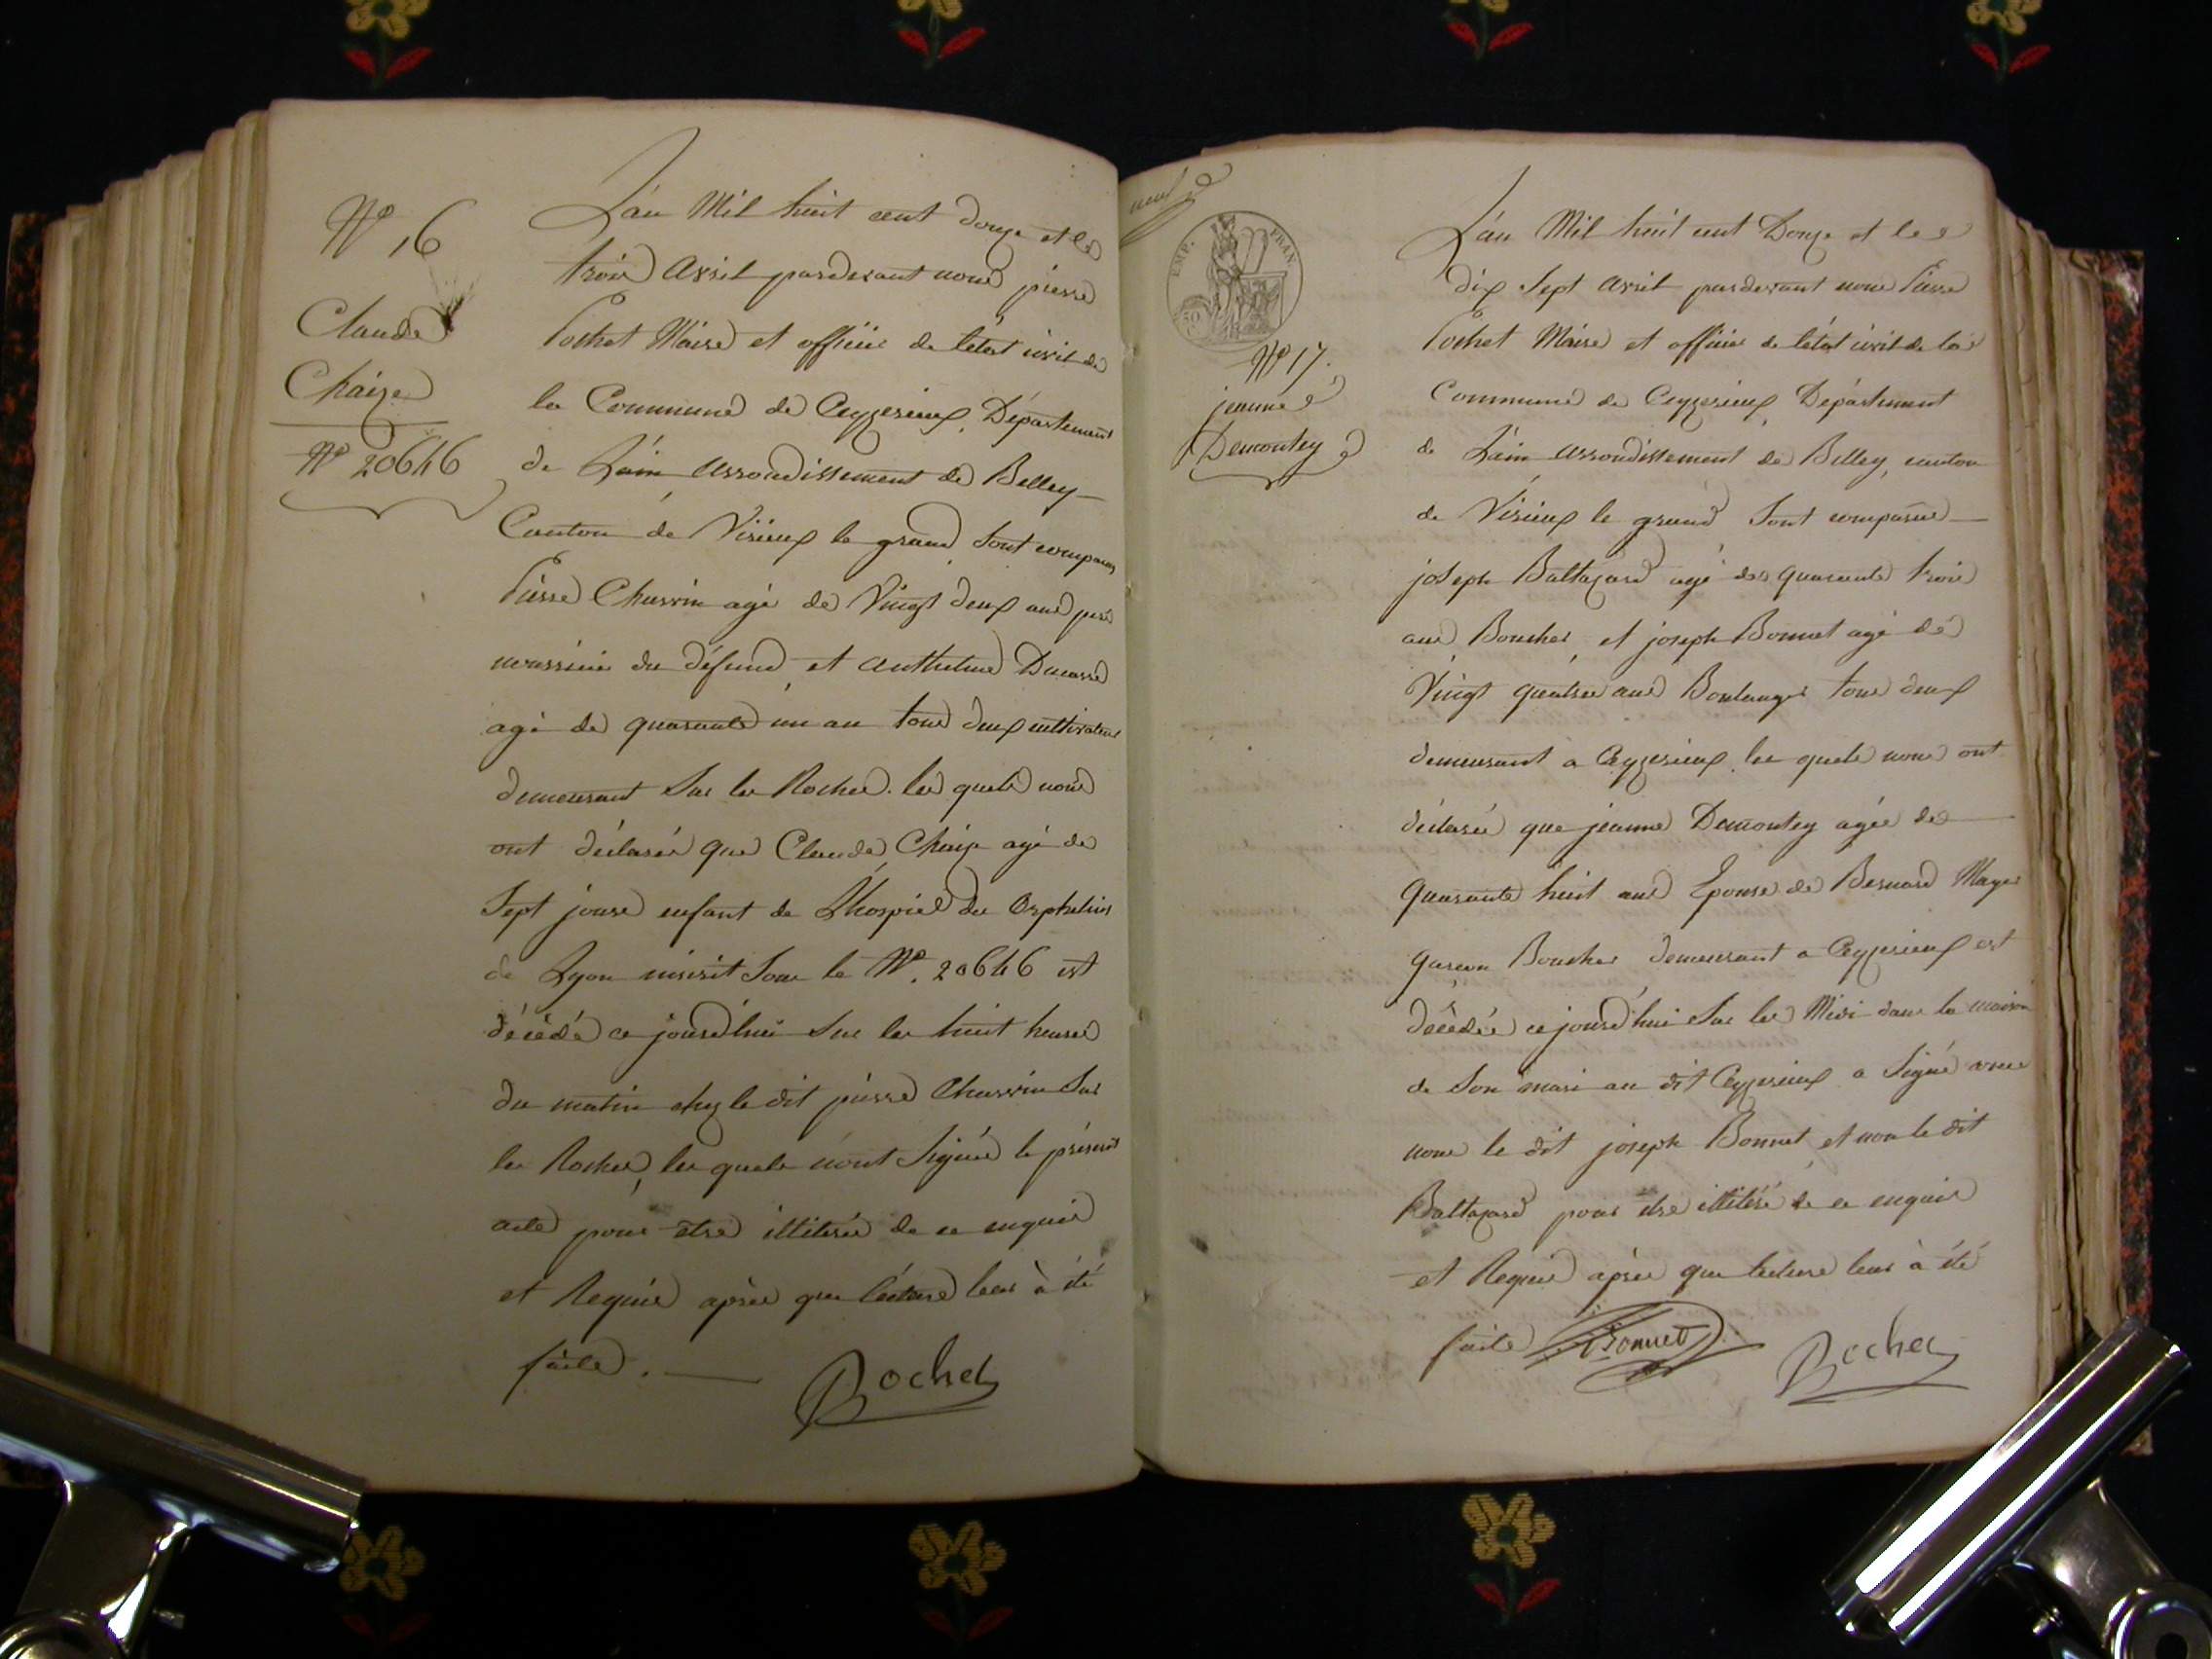 N° 16
Claude
Chaize
N° 20646
L'an Mil huit cent douze et le
trois avril pardevant nous pierre
Pochet Maire et officier de l'état civil de
la Commune de Ceyzerieux, Département
de L'ain arrondissement de Belley
Canton de Virieux le grand, sont comparus
Pierre Charvin agé de Vingt deux ans pere
nourricier du défund, et Anthelme Ducarre
agé de quarante un an tous deux cultivateurs
demeurant Sur les Roches. les quels nous
ont déclarés que Claude Chaize agé de
Sept jours enfant de L'hospice des Orphelins
de Lyon inscrit Sous le N°. 20646 est
décédé ce jourd'hui Sur les huit heures
du matin chez le dit pierre Charvin Sur
les Roches, les quels n'ont Signés le présent
acte pour être illitérés de ce enquis
et Requis après que lecture leur à été
faite.
Pochet
neuf
EMP. FRAN.
50
N° 17.
jeanne
Demontey
L'an Mil huit cent Douze et le
dix Sept avril pardevant nous Pierre
Pochet Maire et officier de l'état civil de la
Commune de Ceyzerieux, Département
de L'ain arrondissement de Belley, canton
de Virieux le grand Sont comparus
joseph Baltazard agé de quarante trois
ans Boucher, et joseph Bonnet agé de
Vingt quatre ans Boulanger tous deux
demeurant a Ceyzerieux les quels nous ont
déclarés que jeanne Demontey agée de
quarante huit ans Epouse de Bernard
garcon Boucher demeurant a Ceyzerieux est
décédée ce jourd'hui Sur les Midi dans la maison
de Son mari au dit Ceyzerieux a Signé avec
nous le dit joseph Bonnet et non le dit
Baltazard pour être illitéré de ce enquis
et Requis après que lecture leur à été
faite Bonnet Pochet